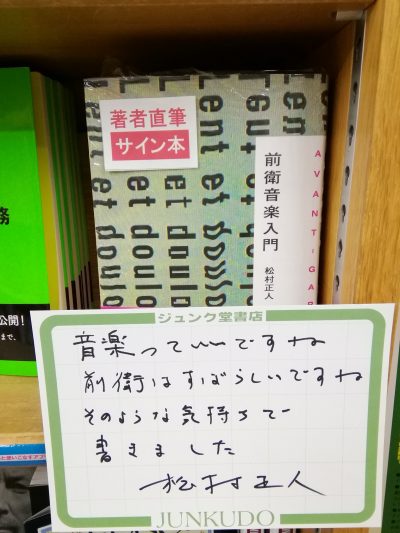 著者直筆
サイン本
Lent et doulo
前衛音楽入門
松村正人
AVANT-GAR
務
公開!
まで、
ジュンク堂書店
音楽っていいですね
前衛はすばらしいですね
そのような気持ちで
書きました
松村正人
JUNKUDO